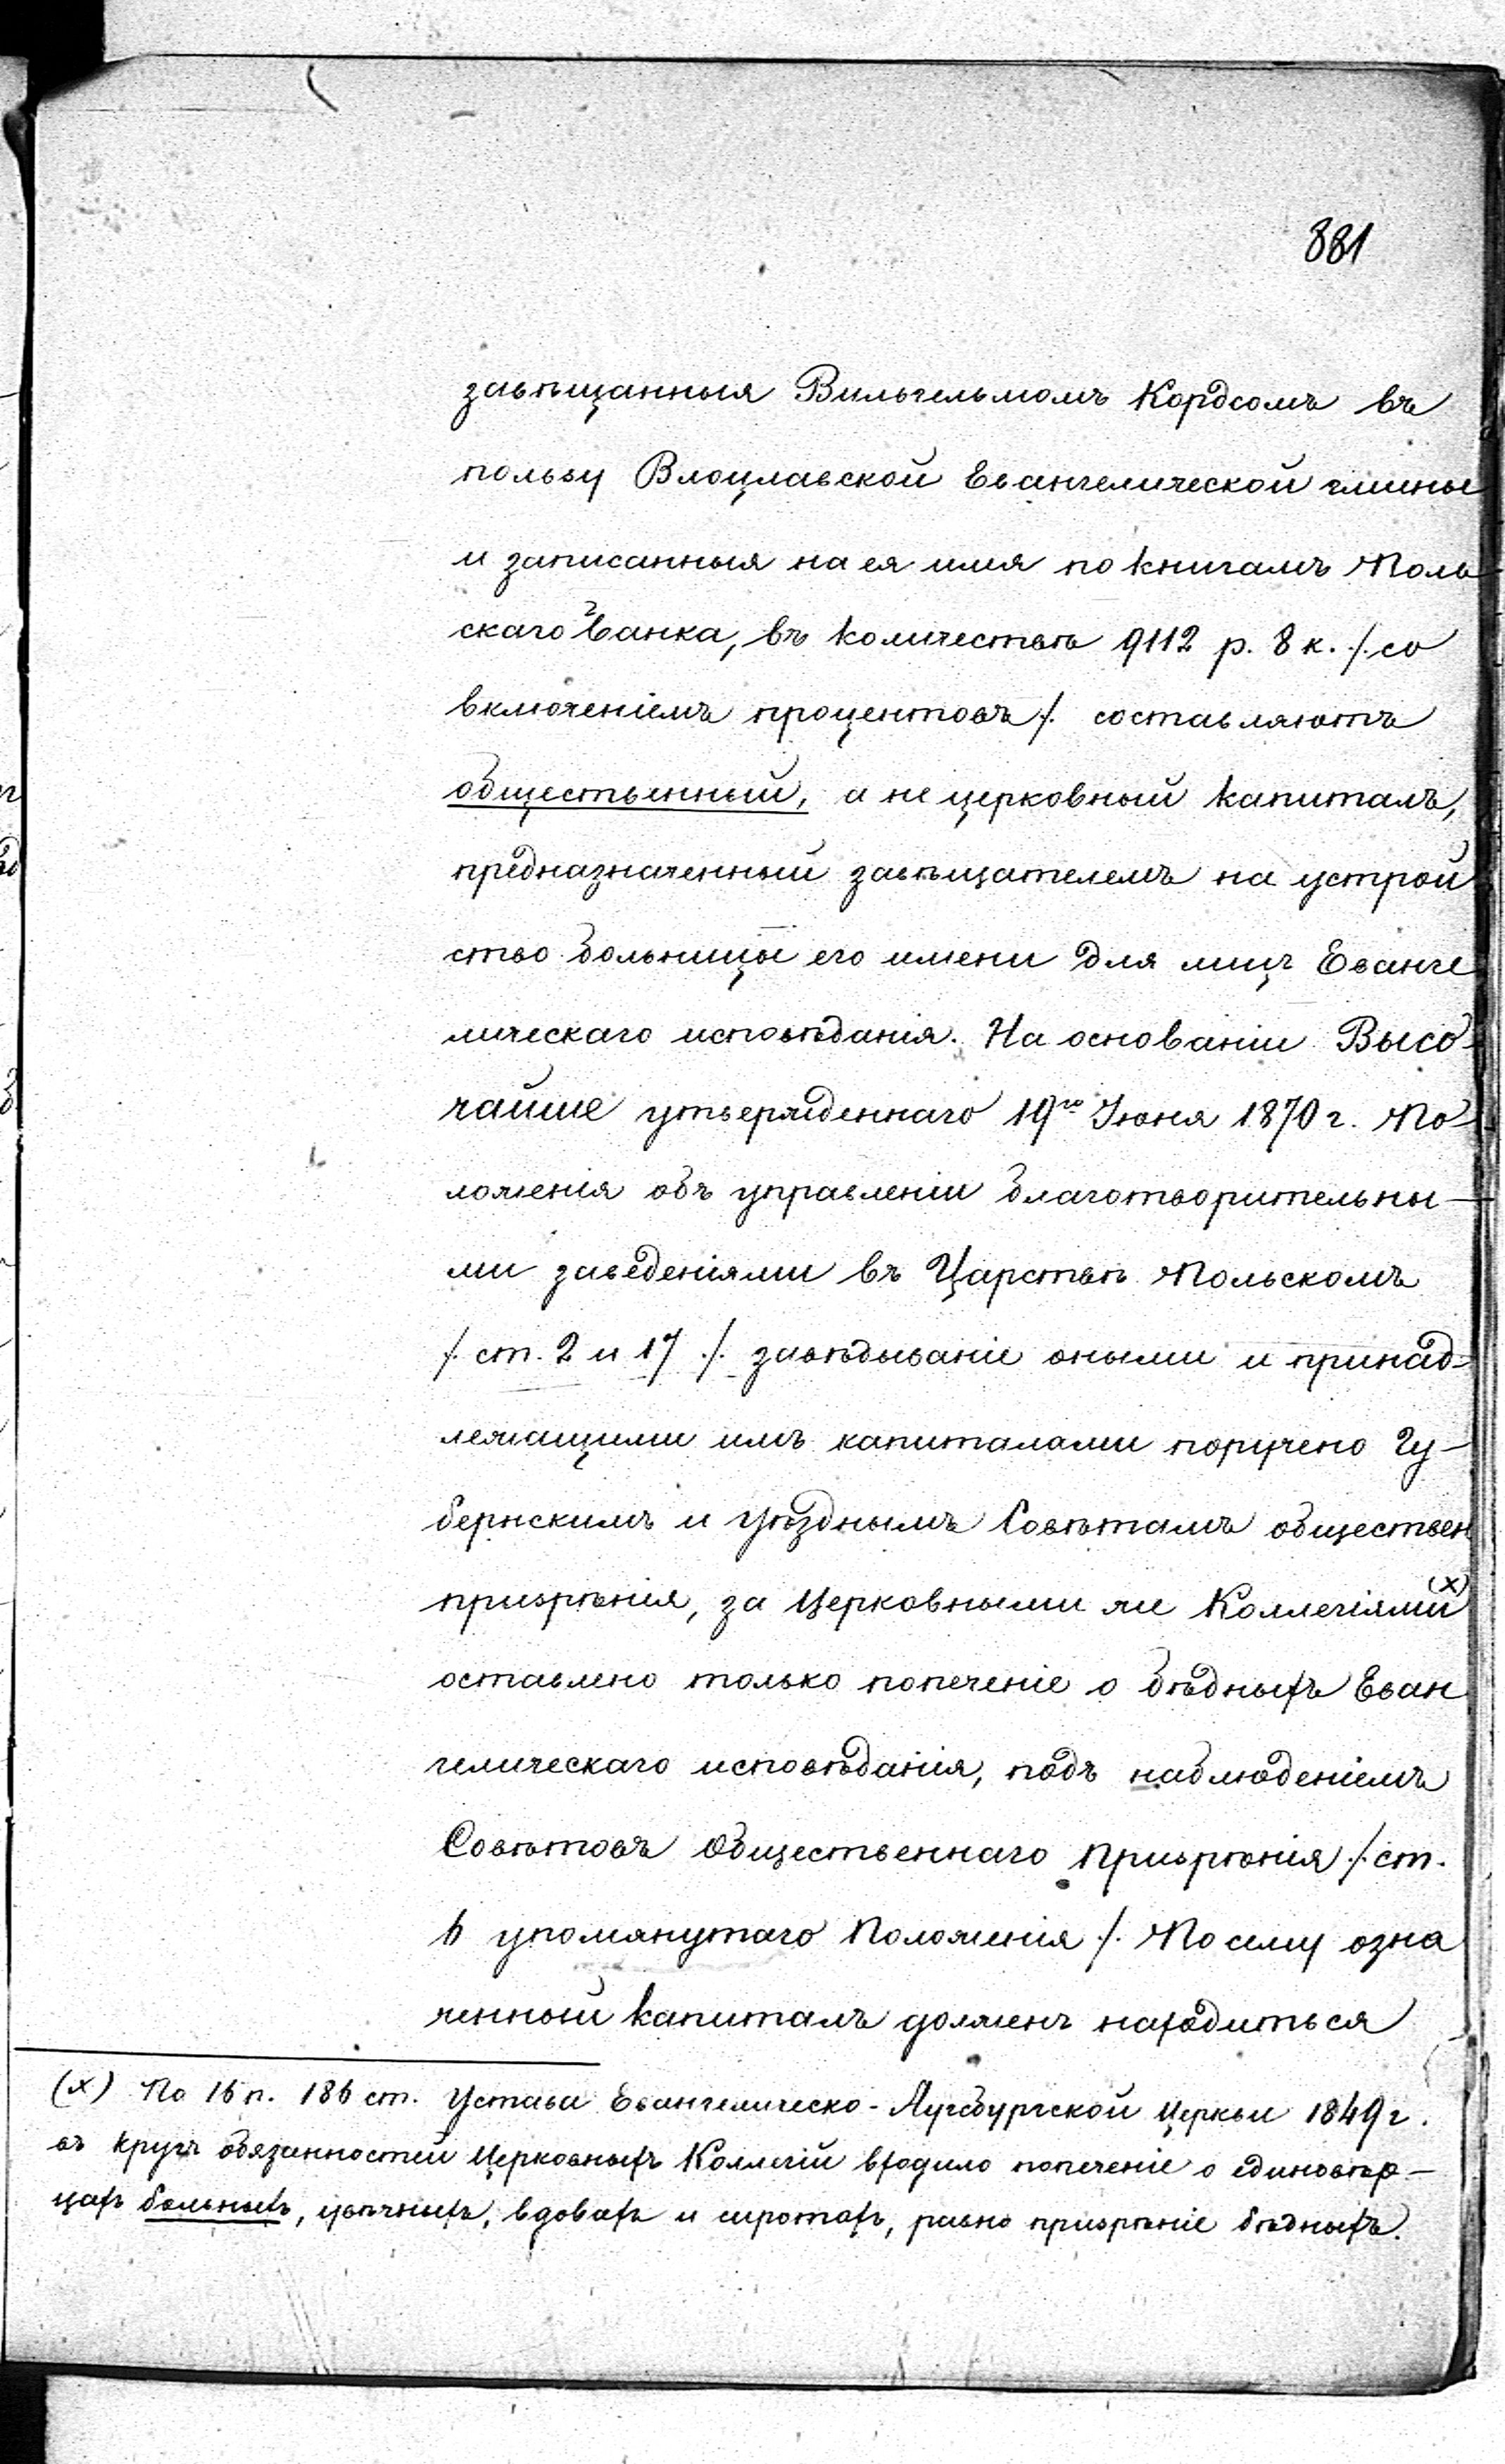 881
завѣщанныя Вильгельмомъ Кордсомъ въ
пользу Влоцлавской Евангелической гмины
и записанныя на ея имя по книгамъ Поль
скаго Банка, въ количествѣ 9112 р. 8 к. /. со
включеніемъ процентовъ /. составляютъ
общественный, а не церковный капиталъ,
предназначенный завѣщателемъ на устрой
ство больницы его имени для лицъ Еванге
лическаго исповѣданія. На основаніи Высо-
чайше утвержденнаго 19го Іюня 1870 г. По-
ложенія объ управленіи благотворительны-
ми заведеніями въ Царствѣ Польскомъ
/. ст. 2 и 17 /. завѣдываніе оными и принад-
лежащими имъ капиталами поручено Гу-
бернскимъ и Уѣзднымъ Совѣтамъ обществен
призрѣнія, за Церковными же Коллегіями (х)
оставлено только попеченіе о бѣдныхъ Еван
гелическаго исповѣданія, подъ наблюденіемъ
Совѣтовъ Общественнаго Призрѣнія /. ст.
6 упомянутаго Положенія /. По сему озна
ченный капиталъ долженъ находиться
(х) По 16 п. 186 ст. Устава Евангелическо-Аугсбургской Церкви 1849 г.
въ кругъ обязанностей Церковныхъ Коллегій входило попеченіе о единовѣр-
цахъ больныхъ, увѣчныхъ, вдовахъ и сиротахъ, равно призрѣніе бѣдныхъ.